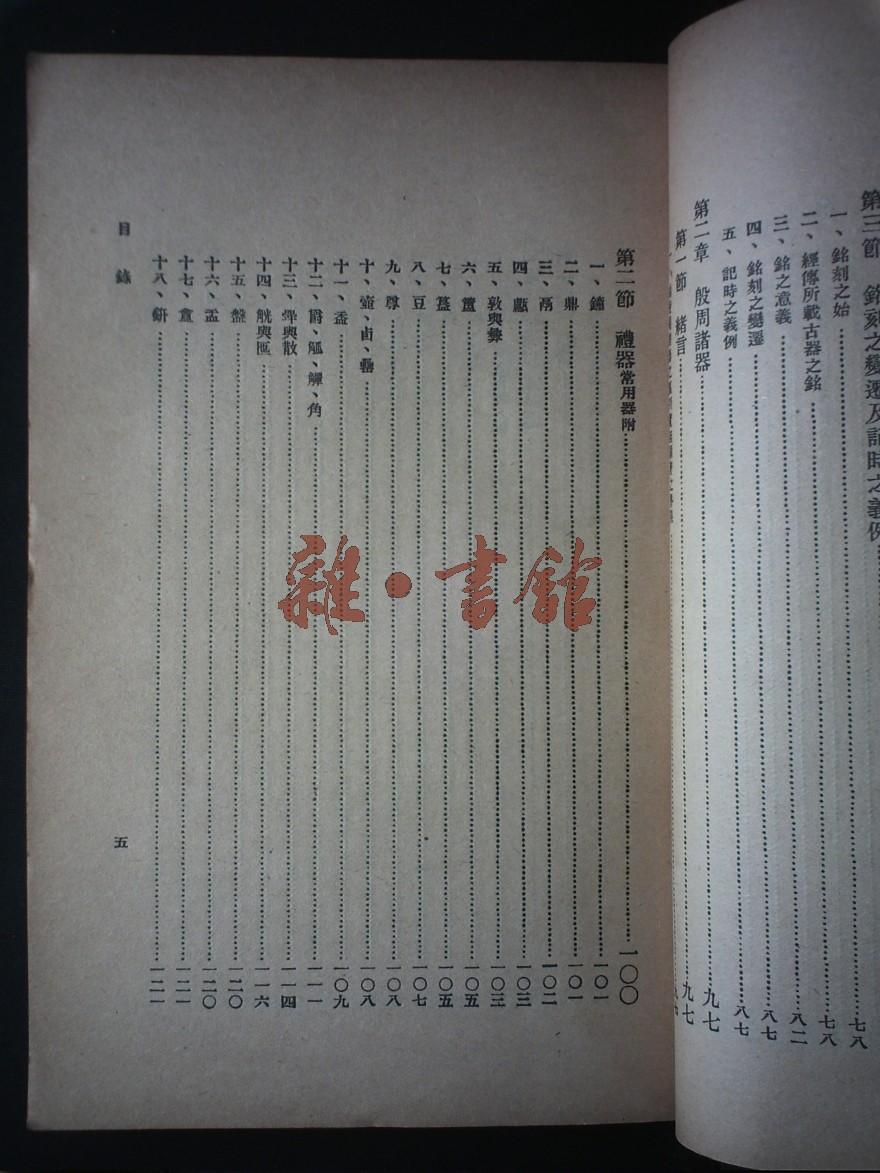 第三節　銘刻之變遷及記時之義例
一、銘刻之始……七八
二、經傳所載古器之銘……七八
三、銘之意義……八二
四、銘刻之變遷……八七
五、記時之義例……八七
第二章　殷周諸器……九七
第一節　緒言……九七
第二節　禮器常用器附……一〇〇
一、鐘……一〇一
二、鼎……一〇一
三、鬲……一〇二
四、甗……一〇三
五、敦與彝……一〇三
六、簠……一〇五
七、簋……一〇五
八、豆……一〇七
九、尊……一〇八
十、壺、卣、罍……一〇八
十一、盉……一〇九
十二、爵、觚、觶、角……一一一
十三、斝與散……一一四
十四、觥與匜……一一六
十五、盤……一二〇
十六、盂……一二〇
十七、盒……一二一
十八、鈃……一二一
目錄
五
雜·書館